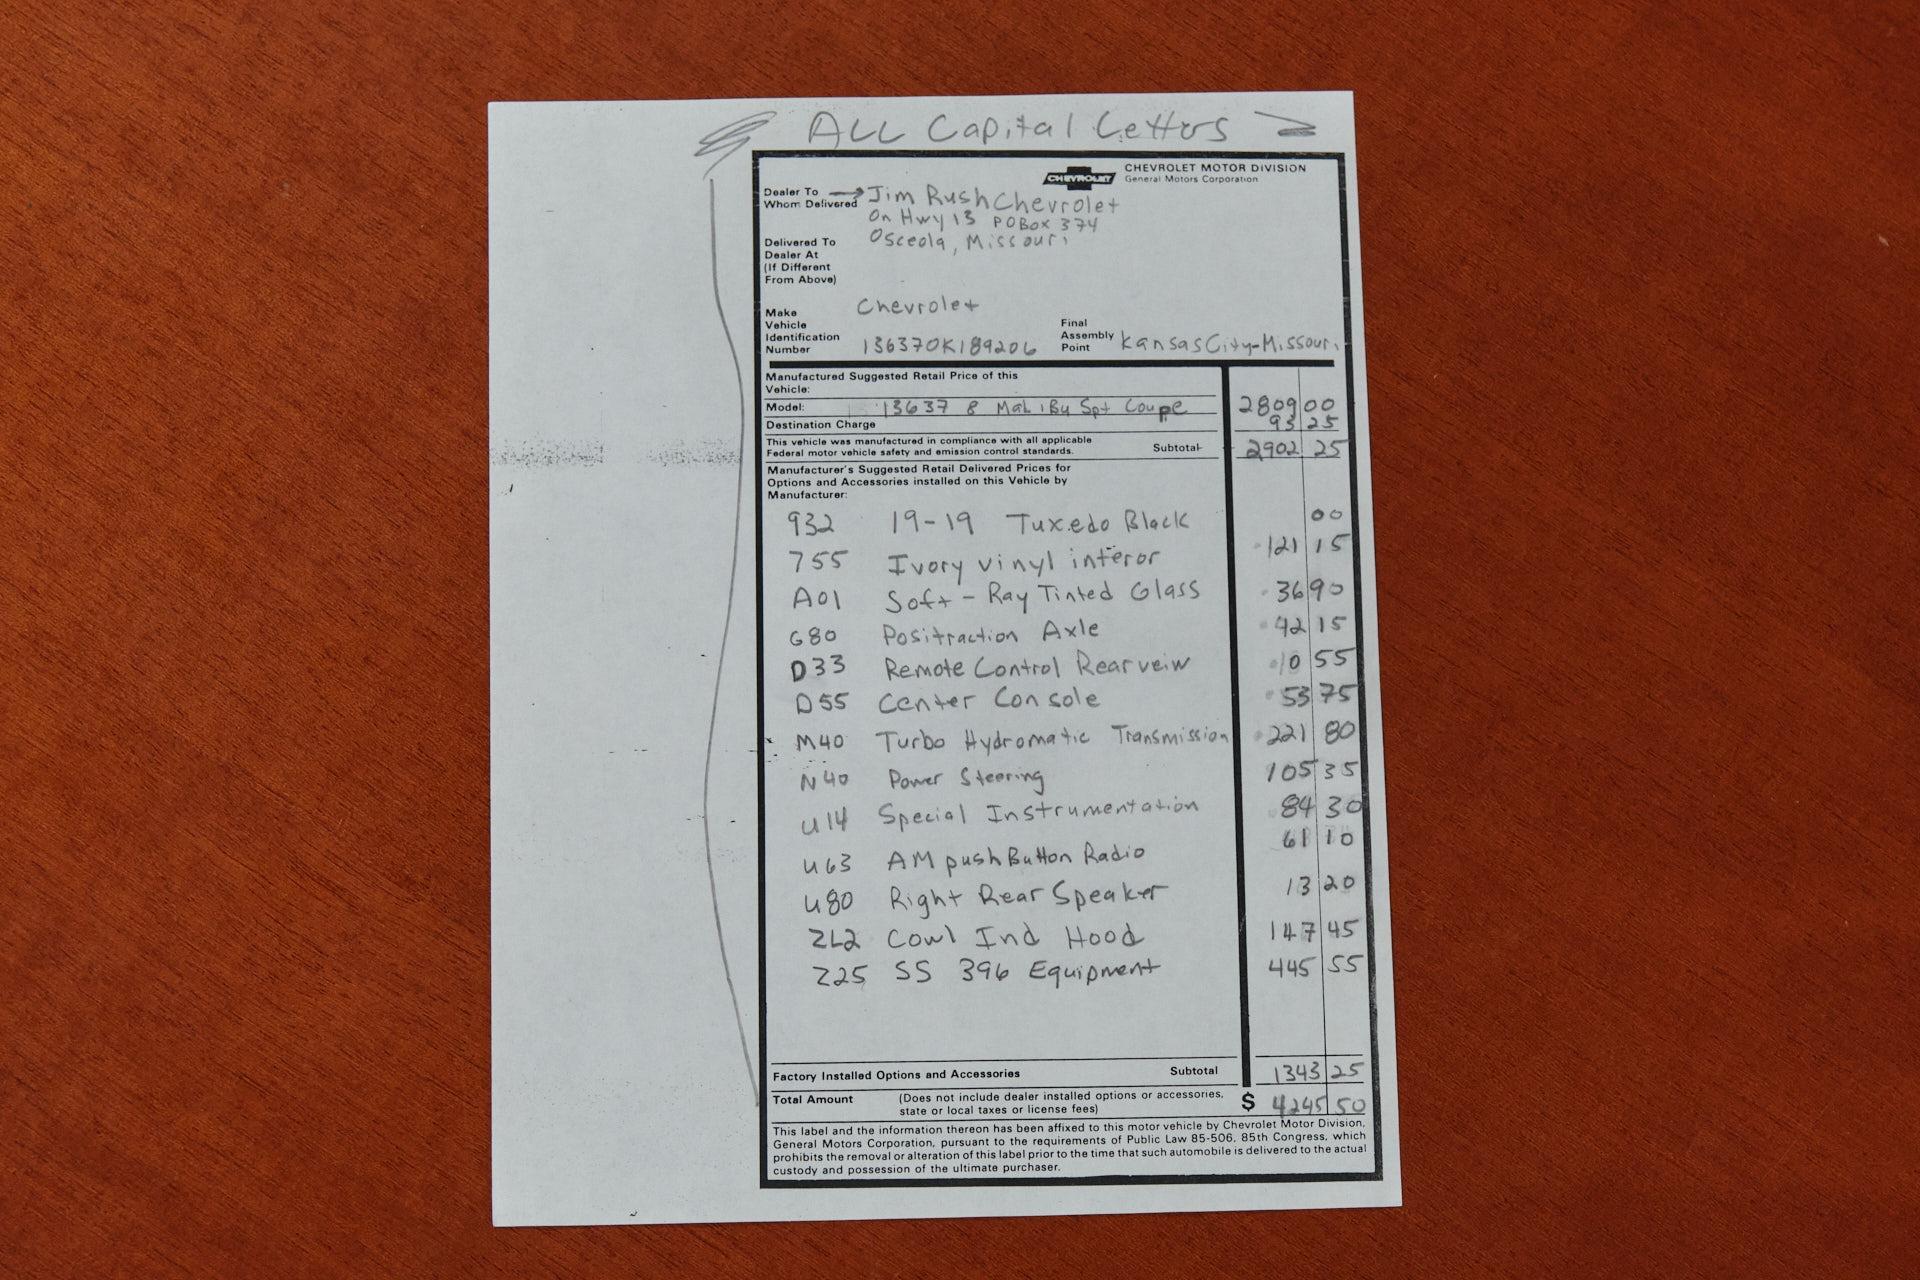 ALL Capital Letters
CHEVROLET
CHEVROLET MOTOR DIVISION
General Motors Corporation
Dealer To
Whom Delivered
Jim Rush Chevrolet
On Hwy 13 PO Box 374
Osceola, Missouri
Delivered To
Dealer At
(If Different
From Above)
Make Chevrolet
Vehicle
Identification
Number 136370K189206
Final
Assembly
Point Kansas City-Missouri
Manufactured Suggested Retail Price of this
Vehicle:
Model: 13637 8 Malibu Spt Coupe 2809 00
Destination Charge 93 25
This vehicle was manufactured in compliance with all applicable
Federal motor vehicle safety and emission control standards. Subtotal 2902 25
Manufacturer's Suggested Retail Delivered Prices for
Options and Accessories installed on this Vehicle by
Manufacturer:
932 19-19 Tuxedo Black 00
755 Ivory vinyl interor 121 15
A01 Soft-Ray Tinted Glass 36 90
G80 Positraction Axle 42 15
D33 Remote Control Rearveiw 10 55
D55 Center Console 53 75
M40 Turbo Hydromatic Transmission 221 80
N40 Power Steering 105 35
U14 Special Instrumentation 84 30
U63 AM push Button Radio 61 10
U80 Right Rear Speaker 13 20
ZL2 Cowl Ind Hood 147 45
Z25 SS 396 Equipment 445 55
Factory Installed Options and Accessories Subtotal 1343 25
Total Amount (Does not include dealer installed options or accessories,
state or local taxes or license fees) $ 4245 50
This label and the information thereon has been affixed to this motor vehicle by Chevrolet Motor Division,
General Motors Corporation, pursuant to the requirements of Public Law 85-506, 85th Congress, which
prohibits the removal or alteration of this label prior to the time that such automobile is delivered to the actual
custody and possession of the ultimate purchaser.